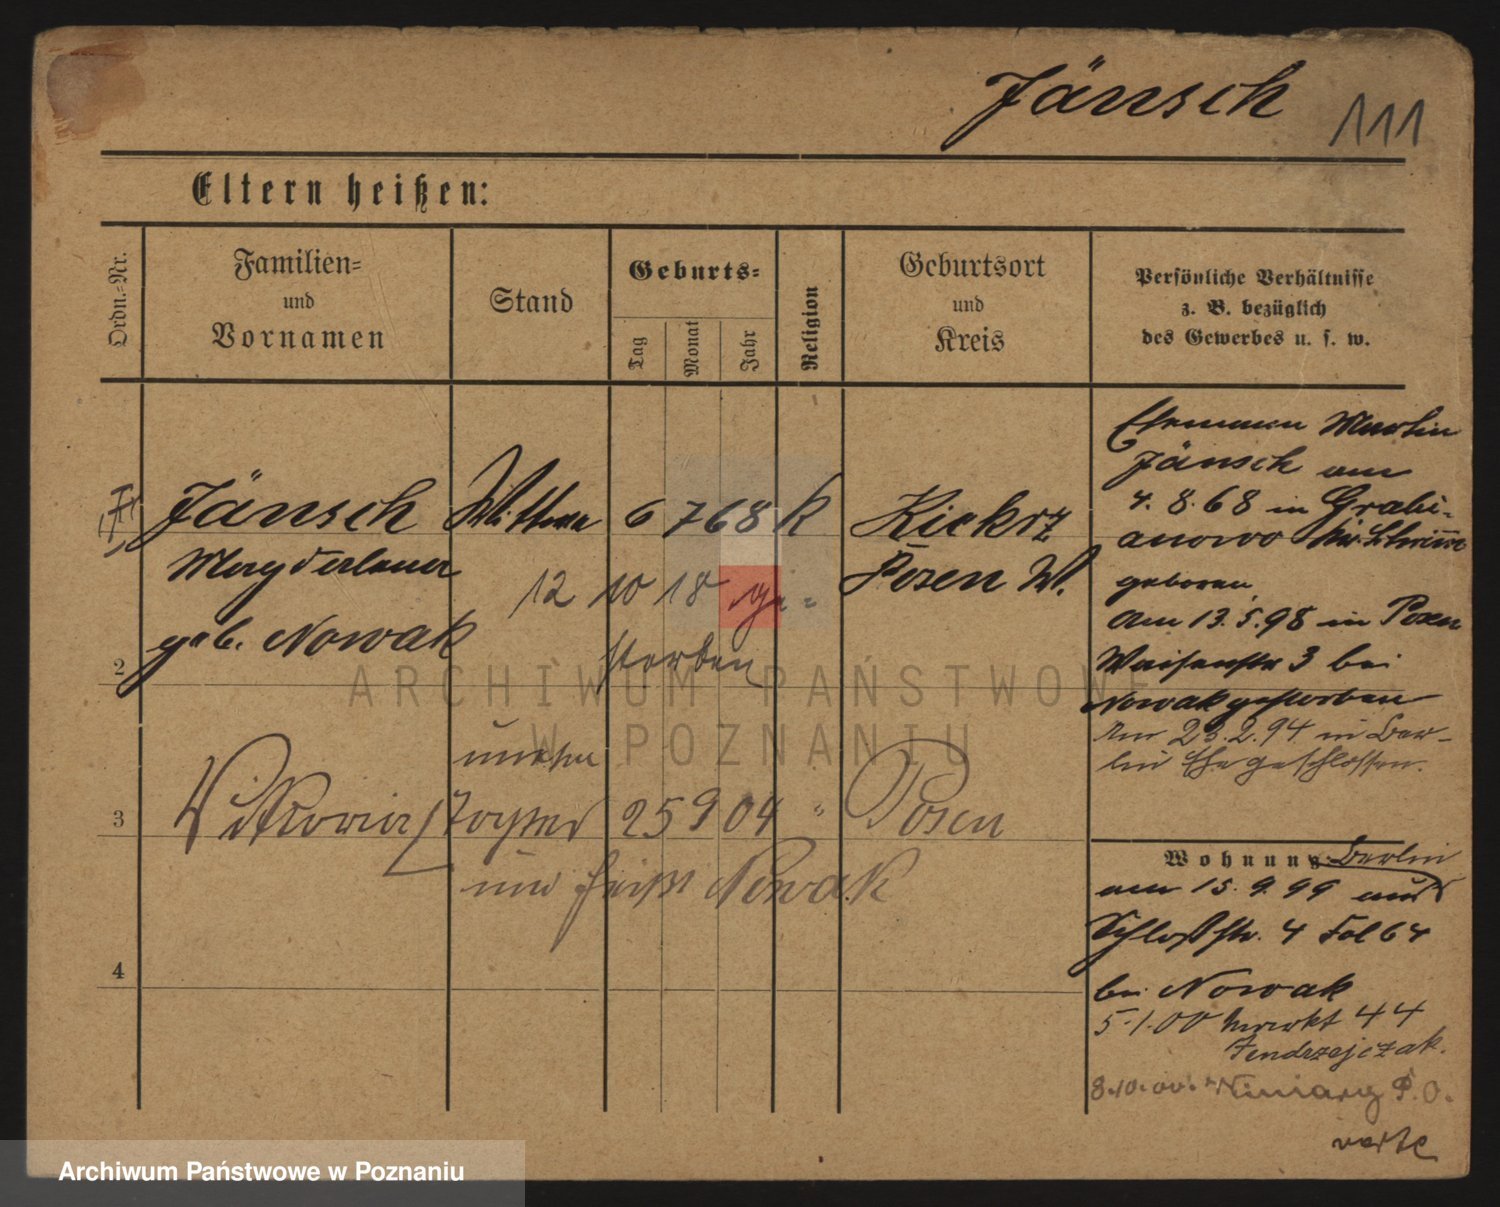 Jänsch 111
Eltern heißen:
Ordn.-Nr.
Familien-
und
Vornamen
Stand
Geburts-
Tag
Monat
Jahr
Religion
Geburtsort
und
Kreis
Persönliche Verhältnisse
z. B. bezüglich
des Gewerbes u. s. w.
Jänsch Wittwe 6 7 68 K Kiekrz
Magdalena
12 10 18 ge-
Posen W.
geb. Nowak
2
storben
unehe
3 Viktoria Tochter 25 9 04 " Posen
und heißt Nowak
4
Ehemann Martin
Jänsch am
4. 8. 68 in Grabi-
anowo
geboren,
am 13. 5. 98 in Posen
Waisenstr 3 bei
Nowak gestorben
Am 23. 2. 94 in Ber-
lin Ehe geschlossen.
Wohnung: Berlin
am 15. 9. 99 aus
Schloßstr. 4 Fol 64
bei Nowak
5. 1. 00 Markt 44
Jendrzejczak.
8. 10. 00. Winiary P. O.
verte
ARCHIWUM PAŃSTWOWE
W POZNANIU
Archiwum Państwowe w Poznaniu